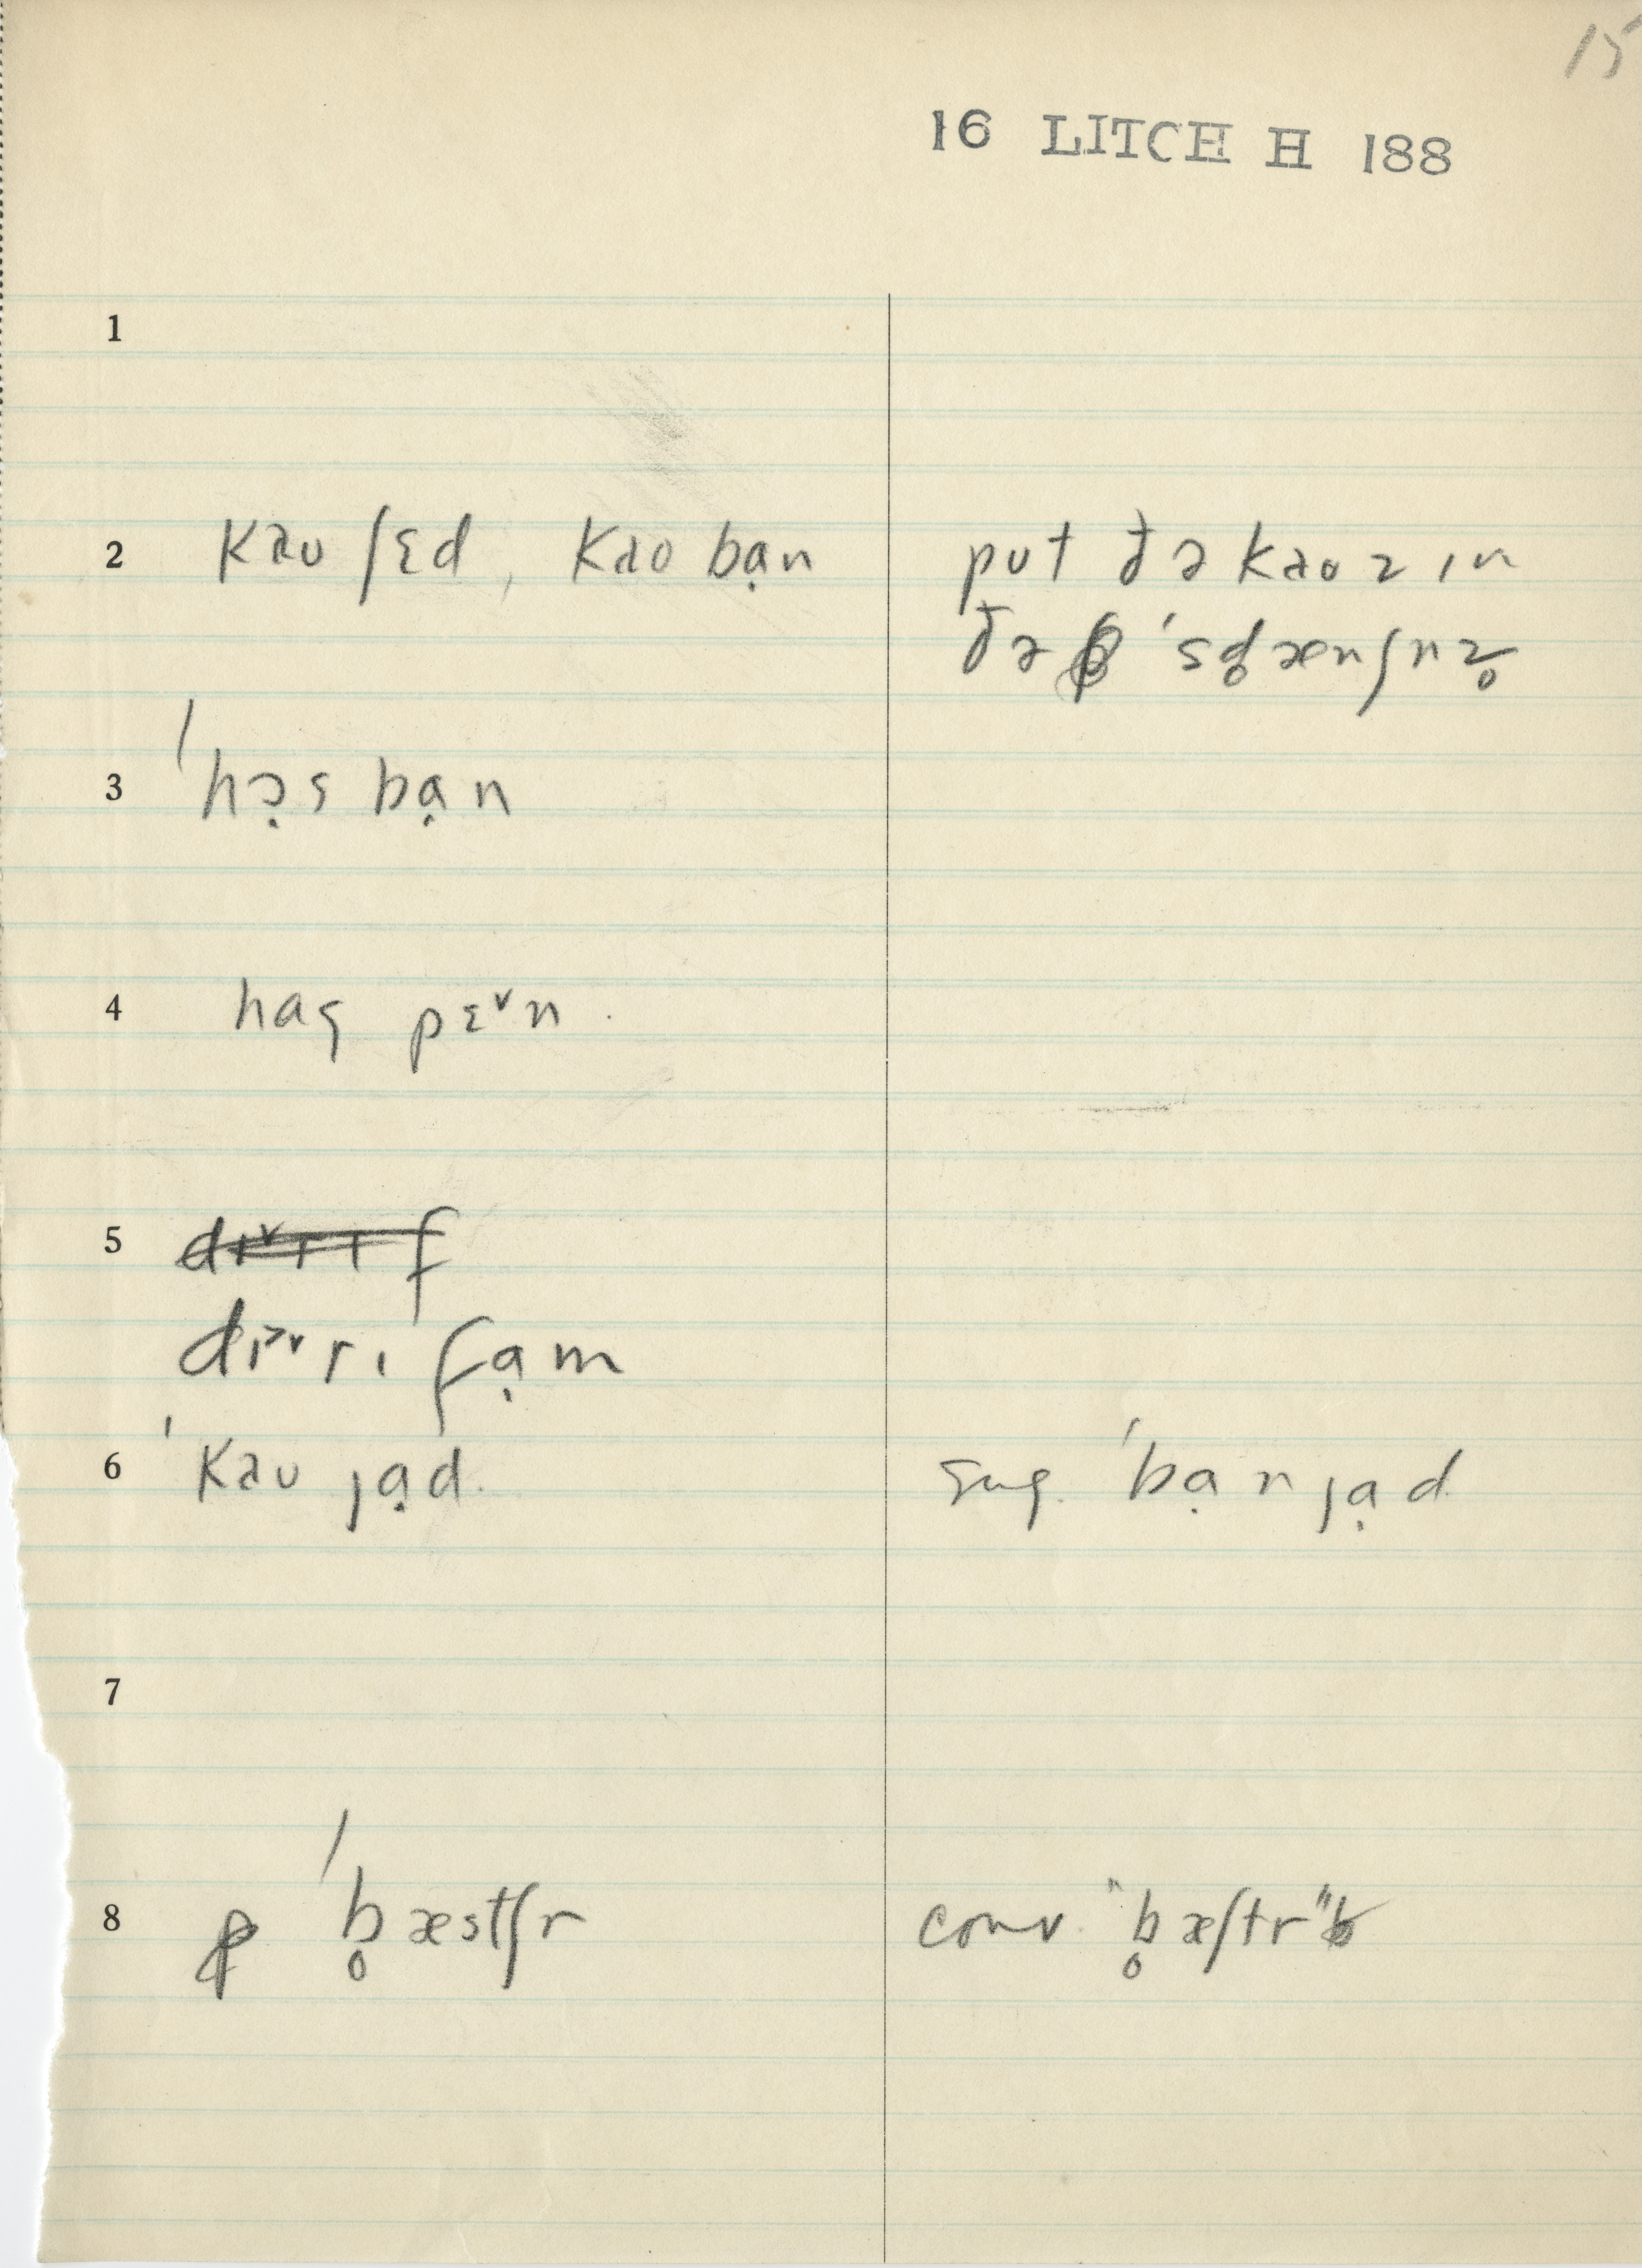 15
16 LITCH H 188
1
2 kaʊ ʃɛd, kaʊ bạn
put ðə kaʊz ɪn
ðə 'sd̥ænʃnz̥
3 'hə̣s bạn
4 hag pɛ˅n.
5 dɪ˅rɪ f
dɪ˃˅rɪ fạm
6 'kaʊ jạd.
sug. 'bạrn jạd
7
8 'b̥æstʃr
conv. "b̥æʃtr"